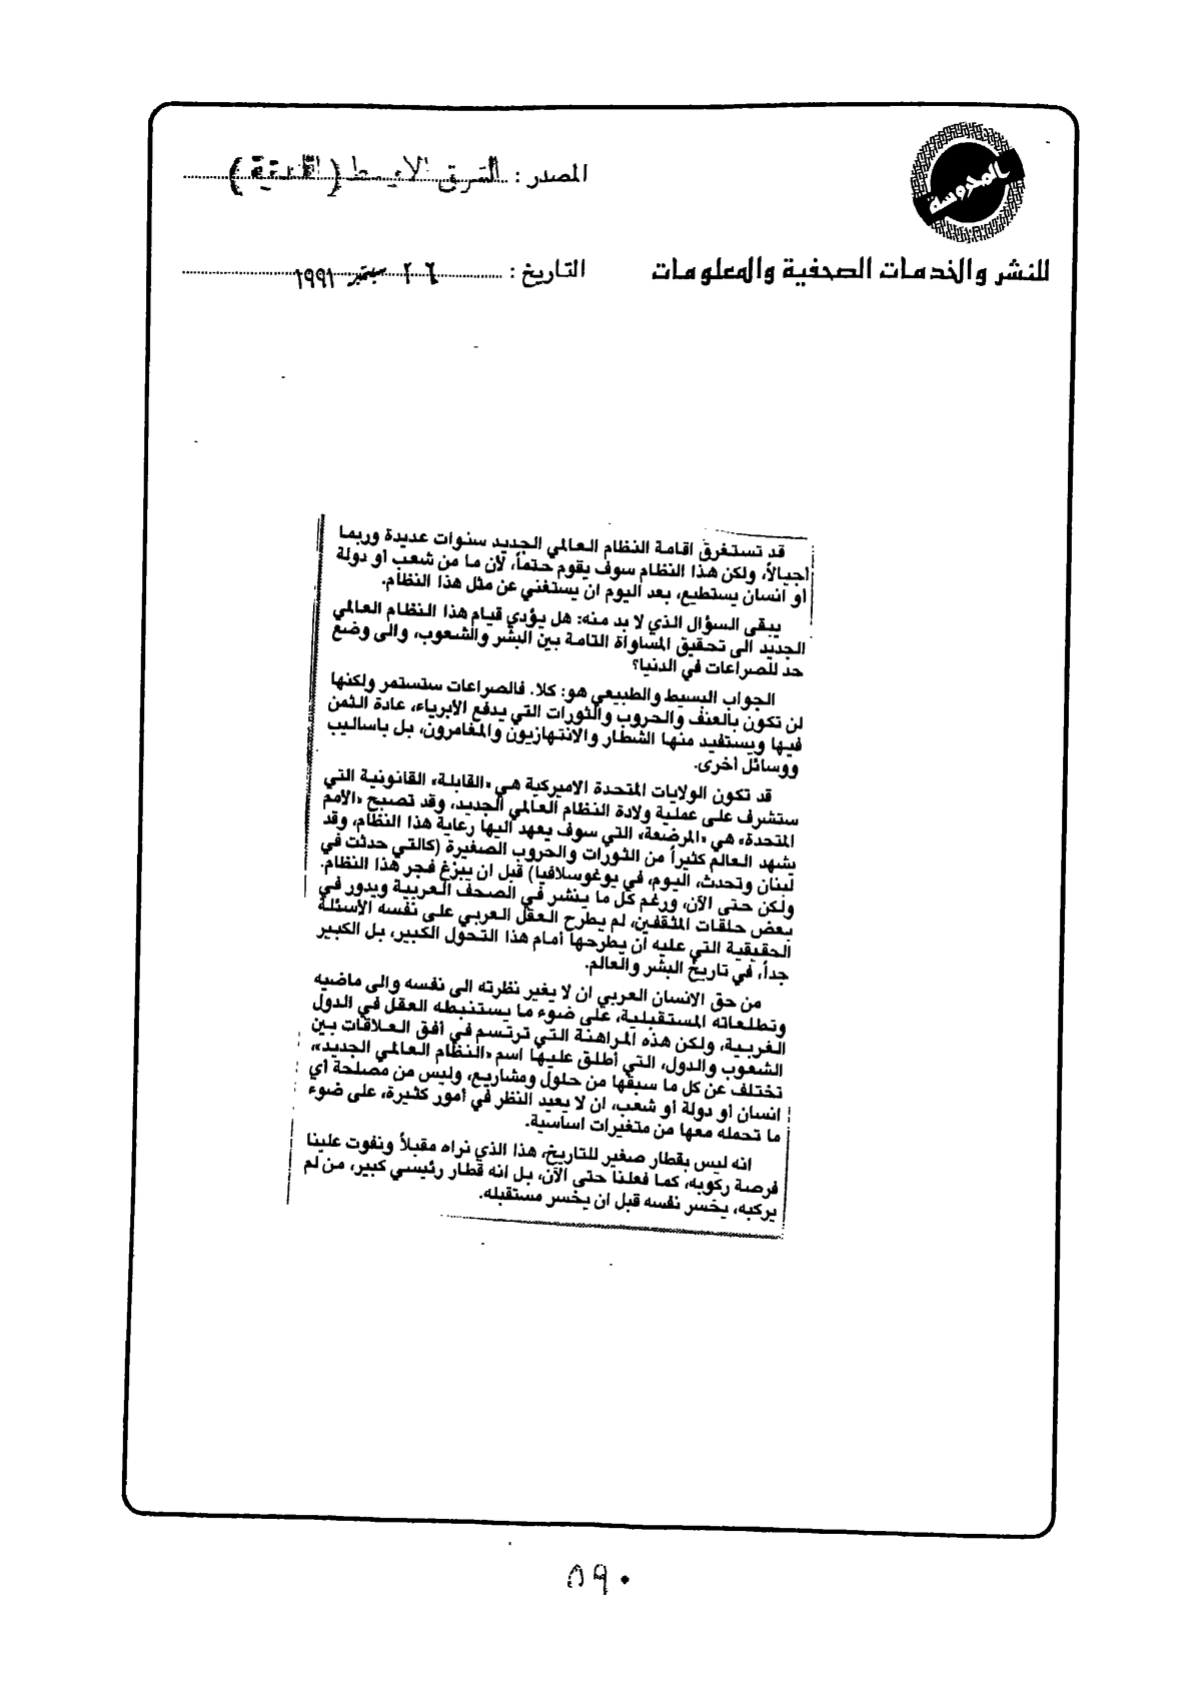 المحروسة
للنشر والخدمات الصحفية والمعلومات
المصدر : الشرق الاوسط (اللندنية)
التاريخ : ٢٦ سبتمبر ١٩٩١
قد تستغرق اقامة النظام العالمي الجديد سنوات عديدة وربما
أجيالاً، ولكن هذا النظام سوف يقوم حتماً، لأن ما من شعب او دولة
او انسان يستطيع، بعد اليوم ان يستغني عن مثل هذا النظام.
يبقى السؤال الذي لا بد منه: هل يؤدي قيام هذا النظام العالمي
الجديد الى تحقيق المساواة التامة بين البشر والشعوب، والى وضع
حد للصراعات في الدنيا؟
الجواب البسيط والطبيعي هو: كلا. فالصراعات ستستمر ولكنها
لن تكون بالعنف والحروب والثورات التي يدفع الأبرياء، عادة الثمن
فيها ويستفيد منها الشطار والانتهازيون والمغامرون، بل بأساليب
ووسائل أخرى.
قد تكون الولايات المتحدة الاميركية هي «القابلة» القانونية التي
ستشرف على عملية ولادة النظام العالمي الجديد، وقد تصبح «الأمم
المتحدة» هي «المرضعة» التي سوف يعهد اليها رعاية هذا النظام، وقد
يشهد العالم كثيراً من الثورات والحروب الصغيرة (كالتي حدثت في
لبنان وتحدث، اليوم، في يوغوسلافيا) قبل ان يبزغ فجر هذا النظام.
ولكن حتى الآن، ورغم كل ما ينشر في الصحف العربية ويدور في
بعض حلقات المثقفين، لم يطرح العقل العربي على نفسه الأسئلة
الحقيقية التي عليه ان يطرحها أمام هذا التحول الكبير، بل الكبير
جداً، في تاريخ البشر والعالم.
من حق الانسان العربي ان لا يغير نظرته الى نفسه والى ماضيه
وتطلعاته المستقبلية، على ضوء ما يستنبطه العقل في الدول
الغربية، ولكن هذه المراهنة التي ترتسم في أفق العلاقات بين
الشعوب والدول، التي أطلق عليها اسم «النظام العالمي الجديد»،
تختلف عن كل ما سبقها من حلول ومشاريع، وليس من مصلحة أي
انسان أو دولة أو شعب، ان لا يعيد النظر في أمور كثيرة، على ضوء
ما تحمله معها من متغيرات اساسية.
انه ليس بقطار صغير للتاريخ، هذا الذي نراه مقبلاً ونفوت علينا
فرصة ركوبه، كما فعلنا حتى الآن، بل انه قطار رئيسي كبير، من لم
يركبه، يخسر نفسه قبل ان يخسر مستقبله.
٥٩٠